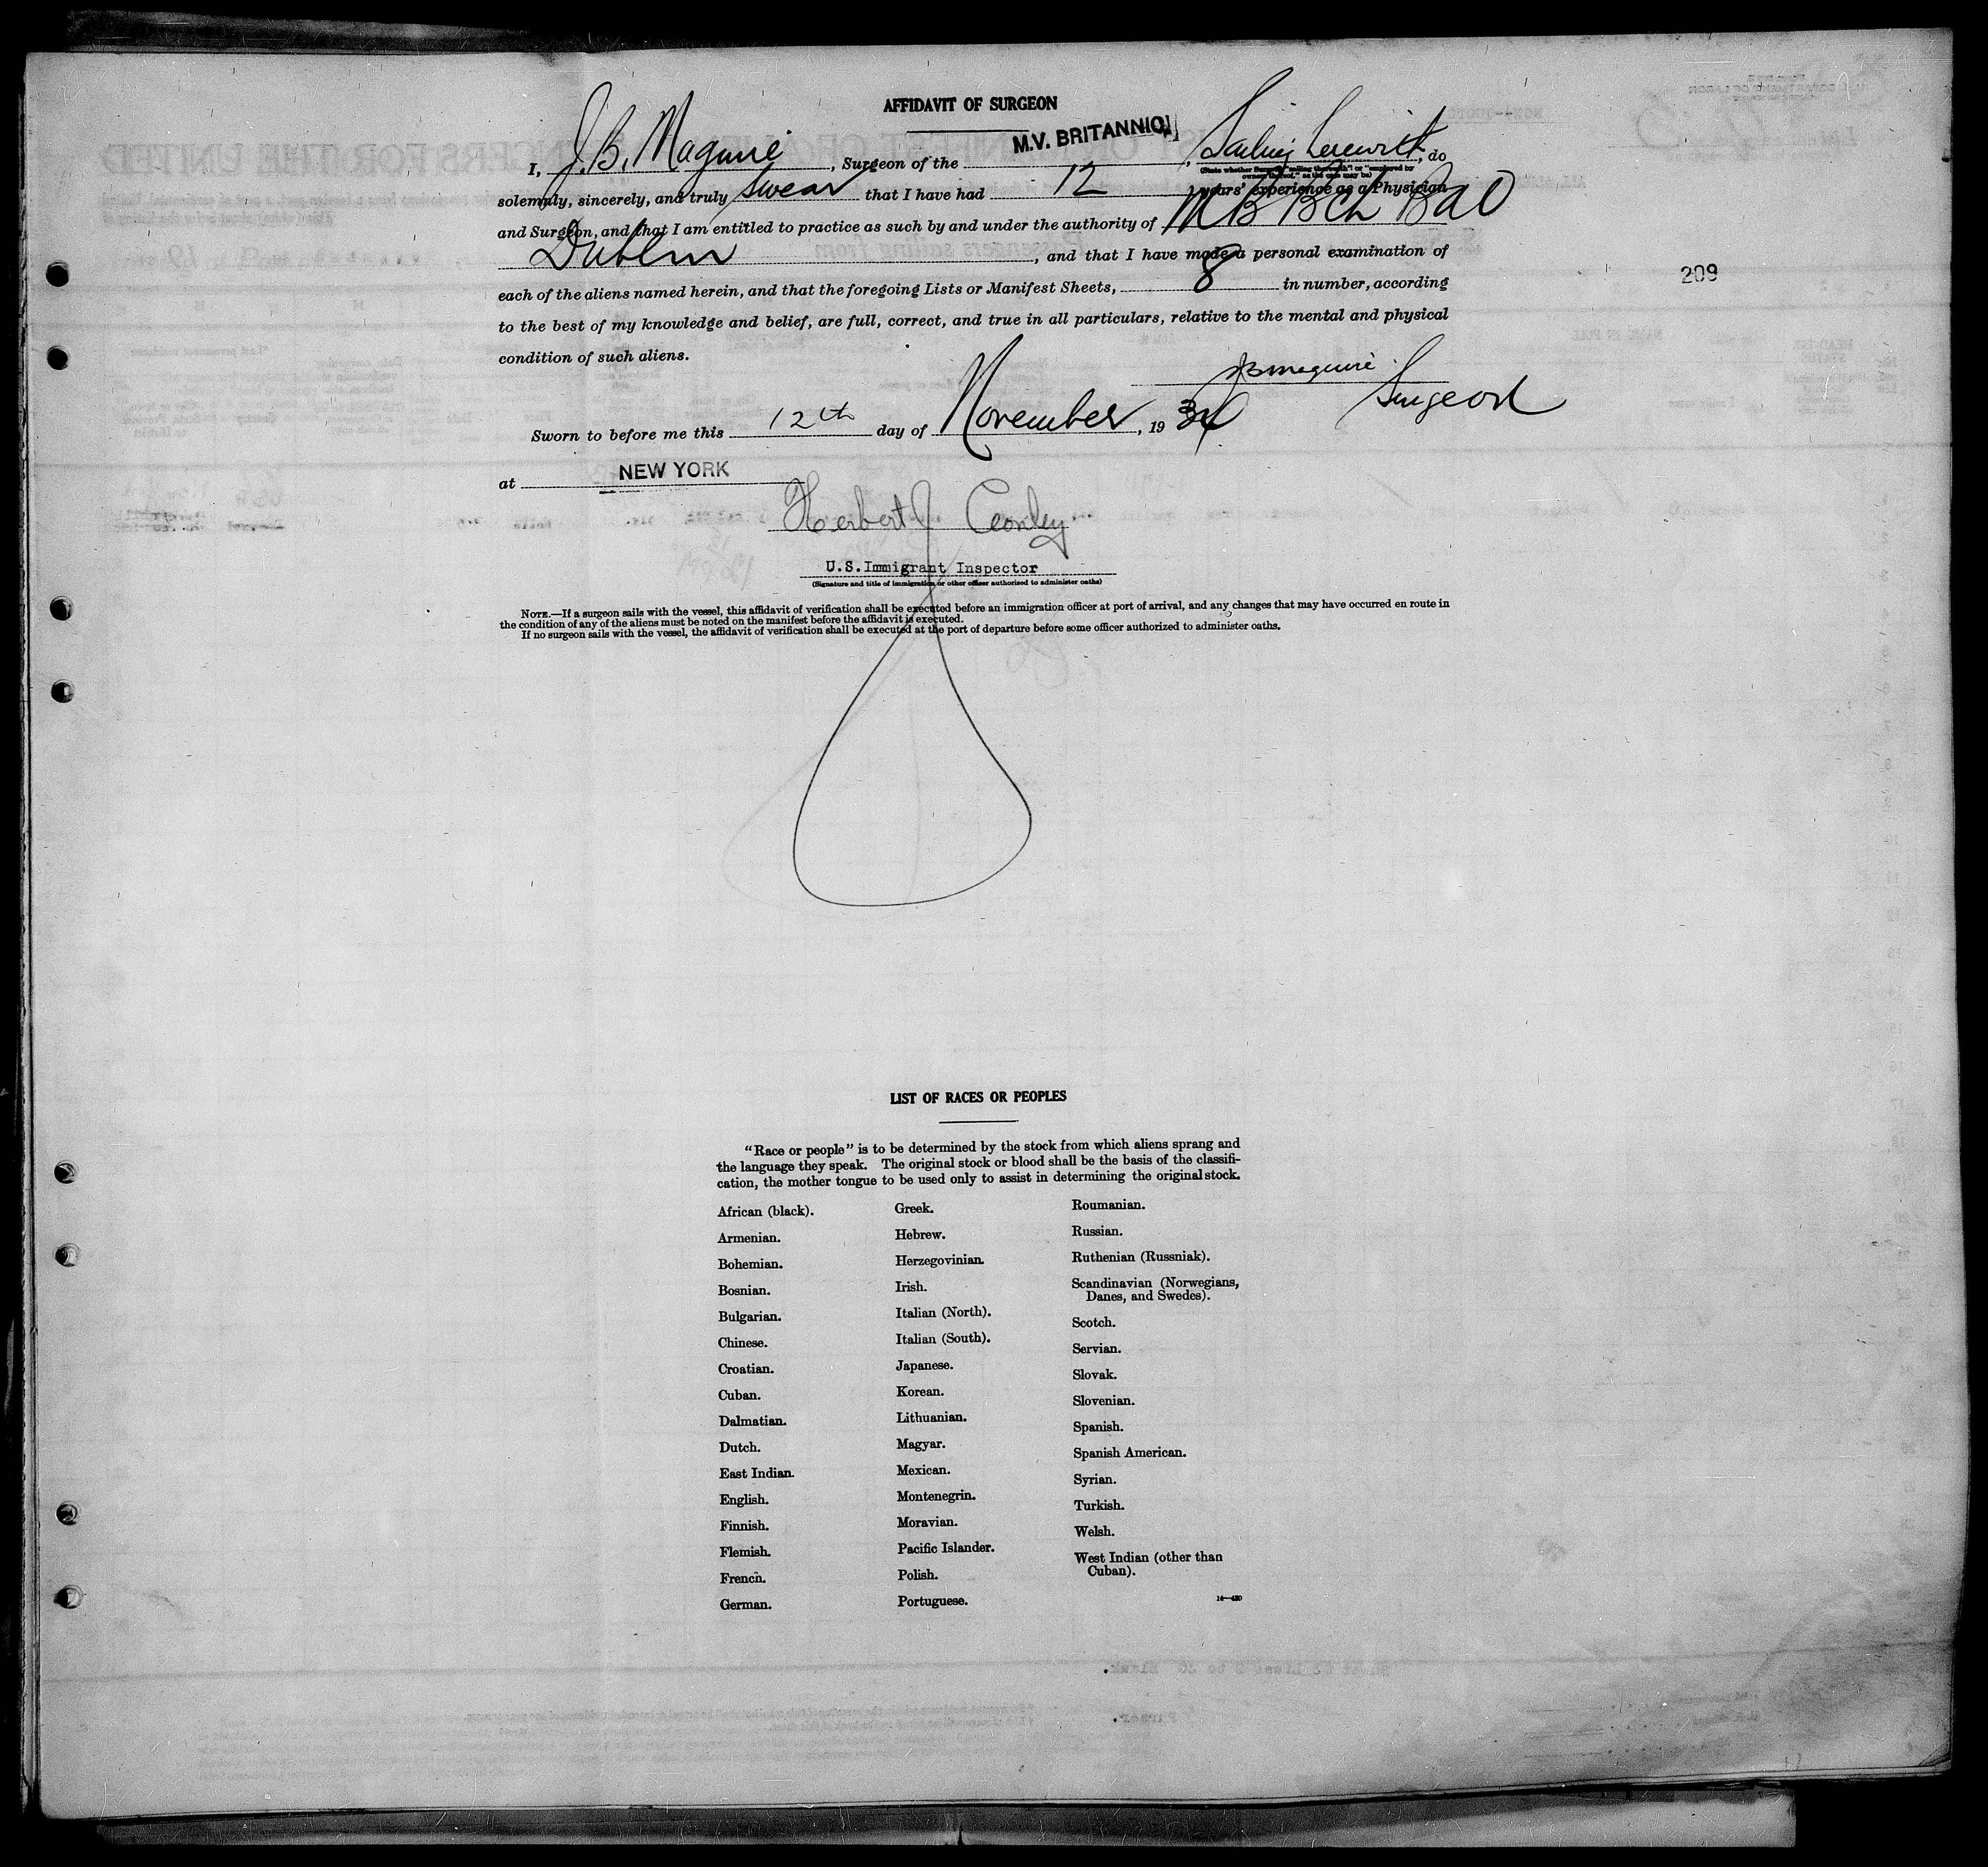 AFFIDAVIT OF SURGEON
I, J. B. Maguire, Surgeon of the M.V. BRITANNIC, Sailing herewith, do
(State whether Surgeon "sailing therewith" or "employed by
owners thereof," as the case may be)
solemnly, sincerely, and truly swear that I have had 12 years' experience as a Physician
and Surgeon, and that I am entitled to practice as such by and under the authority of MB BCh BAO
Dublin, and that I have made a personal examination of
209
each of the aliens named herein, and that the foregoing Lists or Manifest Sheets, 8 in number, according
to the best of my knowledge and belief, are full, correct, and true in all particulars, relative to the mental and physical
condition of such aliens.
JBMaguire
Surgeon
Sworn to before me this 12th day of November, 1934
at NEW YORK
Herbert J
U.S.Immigrant Inspector
(Signature and title of immigration or other officer authorized to administer oaths)
NOTE.—If a surgeon sails with the vessel, this affidavit of verification shall be executed before an immigration officer at port of arrival, and any changes that may have occurred en route in
the condition of any of the aliens must be noted on the manifest before the affidavit is executed.
If no surgeon sails with the vessel, the affidavit of verification shall be executed at the port of departure before some officer authorized to administer oaths.
LIST OF RACES OR PEOPLES
"Race or people" is to be determined by the stock from which aliens sprang and
the language they speak. The original stock or blood shall be the basis of the classifi-
cation, the mother tongue to be used only to assist in determining the original stock.
African (black).
Armenian.
Bohemian.
Bosnian.
Bulgarian.
Chinese.
Croatian.
Cuban.
Dalmatian.
Dutch.
East Indian.
English.
Finnish.
Flemish.
French.
German.
Greek.
Hebrew.
Herzegovinian.
Irish.
Italian (North).
Italian (South).
Japanese.
Korean.
Lithuanian.
Magyar.
Mexican.
Montenegrin.
Moravian.
Pacific Islander.
Polish.
Portuguese.
Roumanian.
Russian.
Ruthenian (Russniak).
Scandinavian (Norwegians,
Danes, and Swedes).
Scotch.
Servian.
Slovak.
Slovenian.
Spanish.
Spanish American.
Syrian.
Turkish.
Welsh.
West Indian (other than
Cuban).